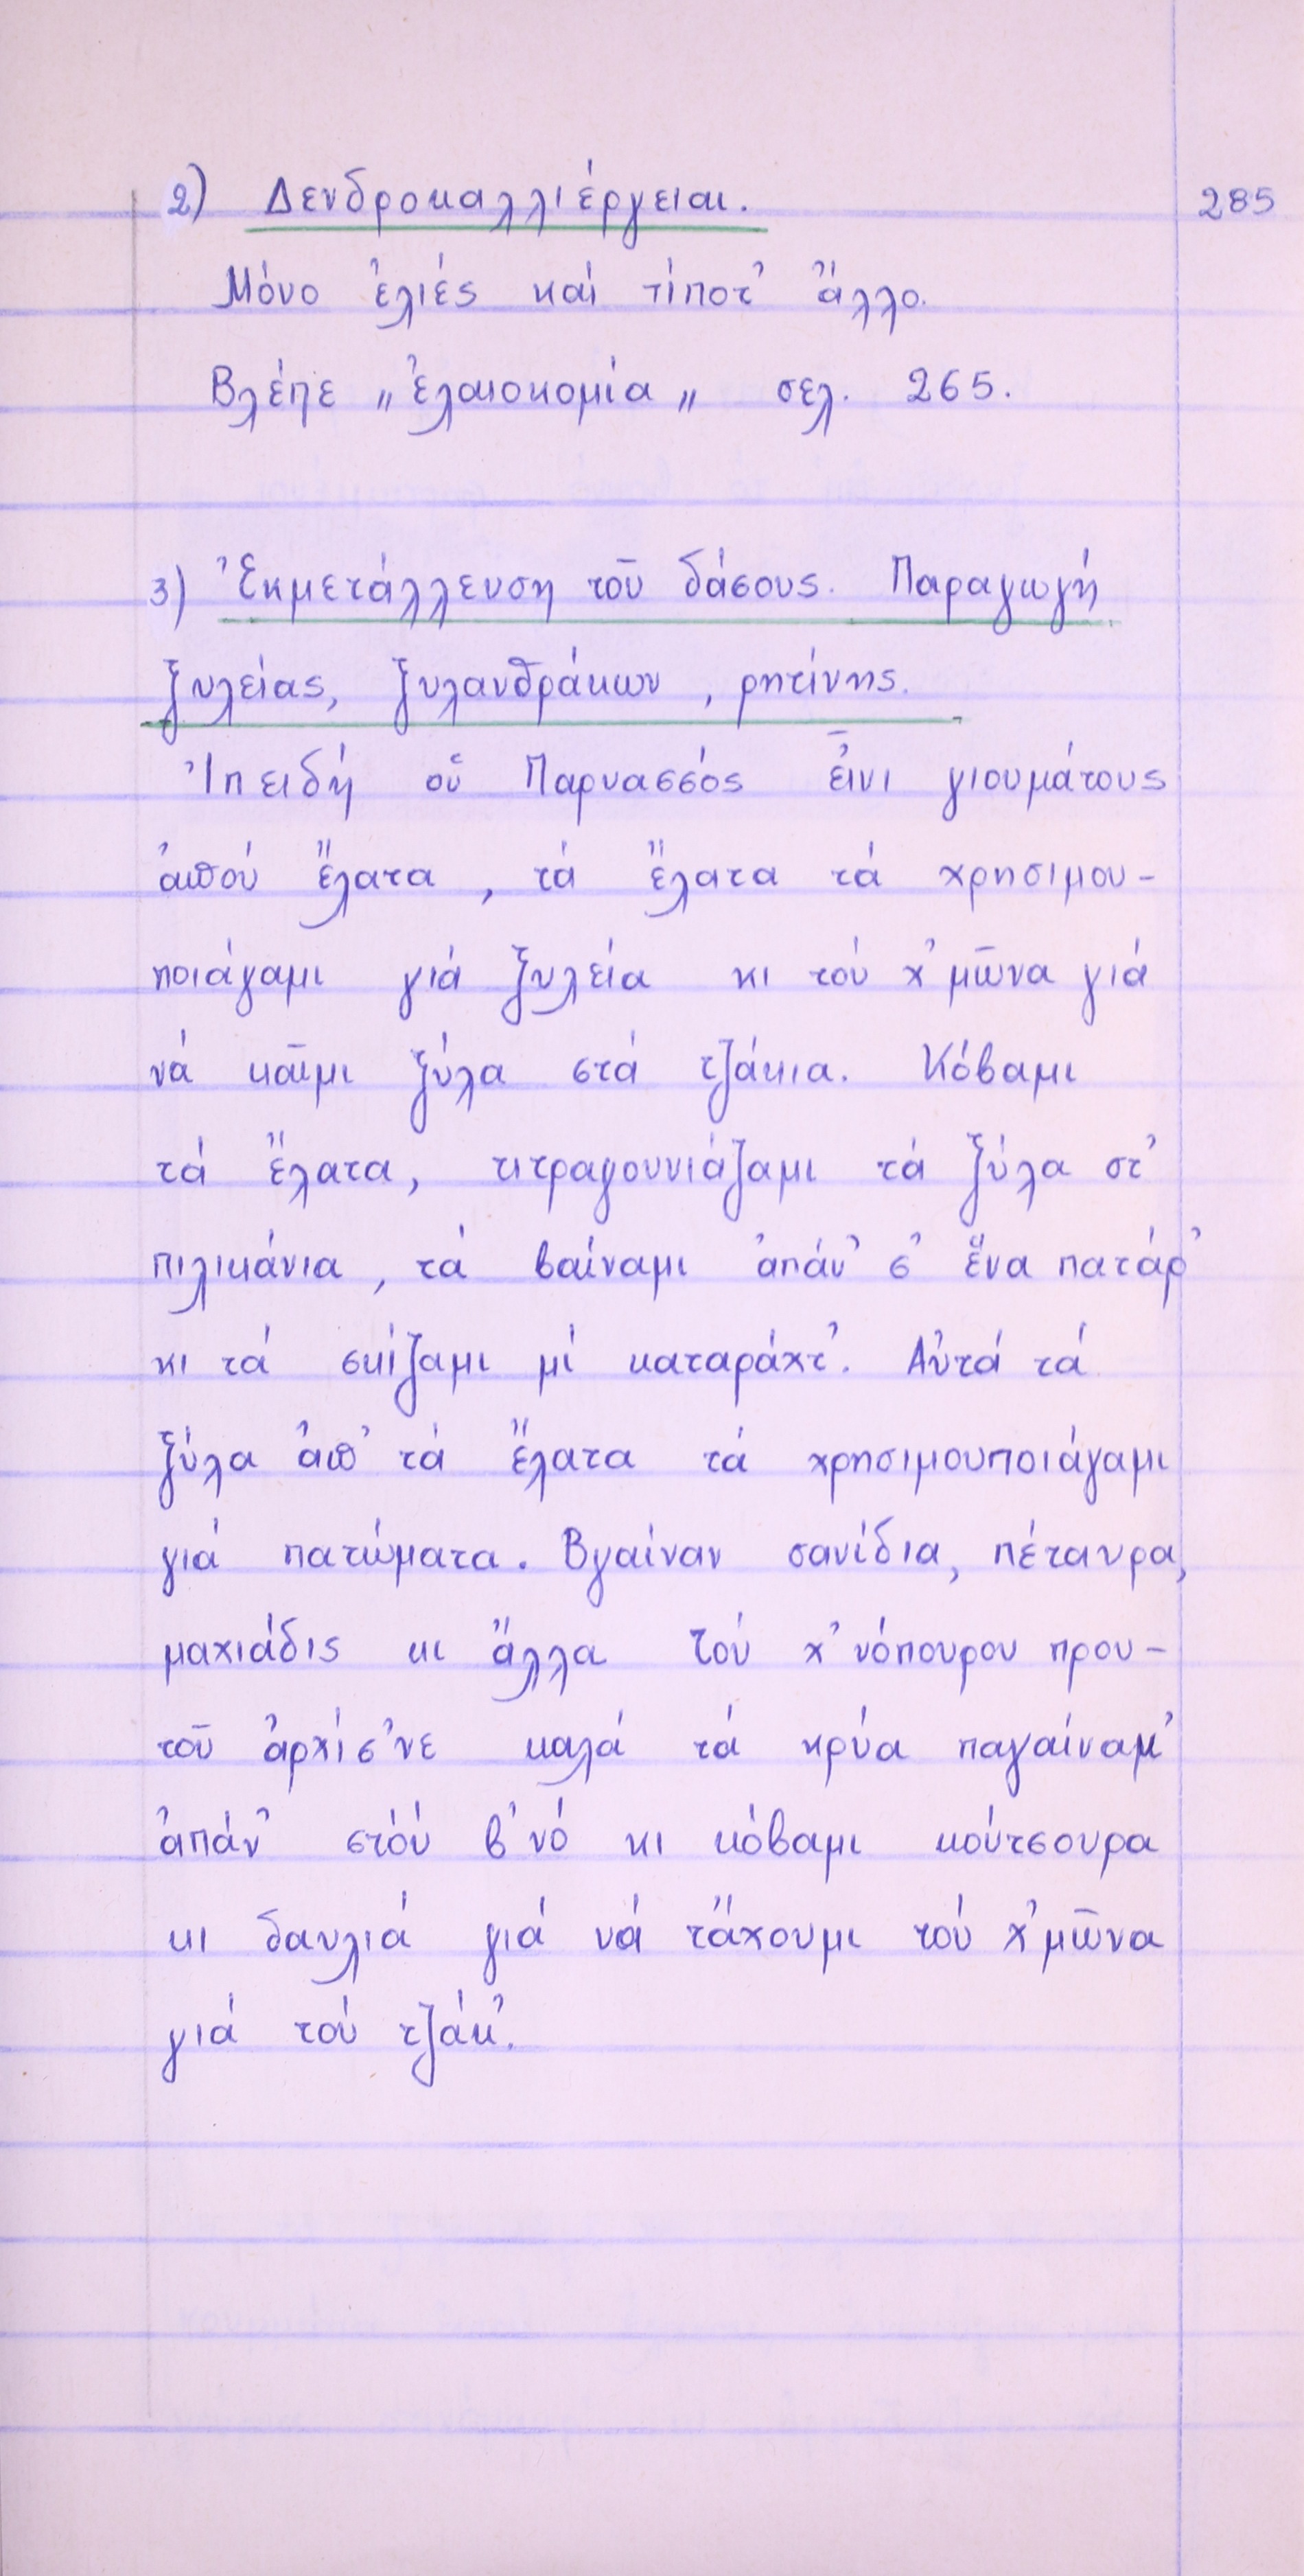 2) Δενδροκαλλιέργειαι.
285
Μόνο ἐλιές καί τίποτ' ἄλλο.
Βλέπε „ἐλαιοκομία„ σελ. 265.
3) Ἐκμετάλλευση τοῦ δάσους. Παραγωγή
ξυλείας, ξυλανθράκων, ρητίνης.
Ἰπειδή οὑ Παρνασσός εἶνι γιουμάτους
ἀπού ἔλατα, τά ἔλατα τά χρησιμου-
ποιάγαμι γιά ξυλεία κι τού χ'μῶνα γιά
νά καῖμι ξύλα στά τζάκια. Κόβαμι
τά ἔλατα, τιτραγουνιάζαμι τά ξύλα στ'
πιλικάνια, τά βαίναμι ἀπάν' σ' ἕνα πατάρ'
κι τά σκίζαμι μί καταράχτ'. Αὐτά τά
ξύλα ἀπ' τά ἔλατα τά χρησιμουποιάγαμι
γιά πατώματα. Βγαίναν σανίδια, πέταυρα,
μαχιάδις κι ἄλλα Τού χ'νόπουρου πρου-
τοῦ ἀρχίσ'νε καλά τά κρύα παγαίναμ'
ἀπάν' στού β'νό κι κόβαμι κούτσουρα
κι δαυλιά γιά νά τἄχουμι τού χ'μῶνα
γιά τού τζάκ'.